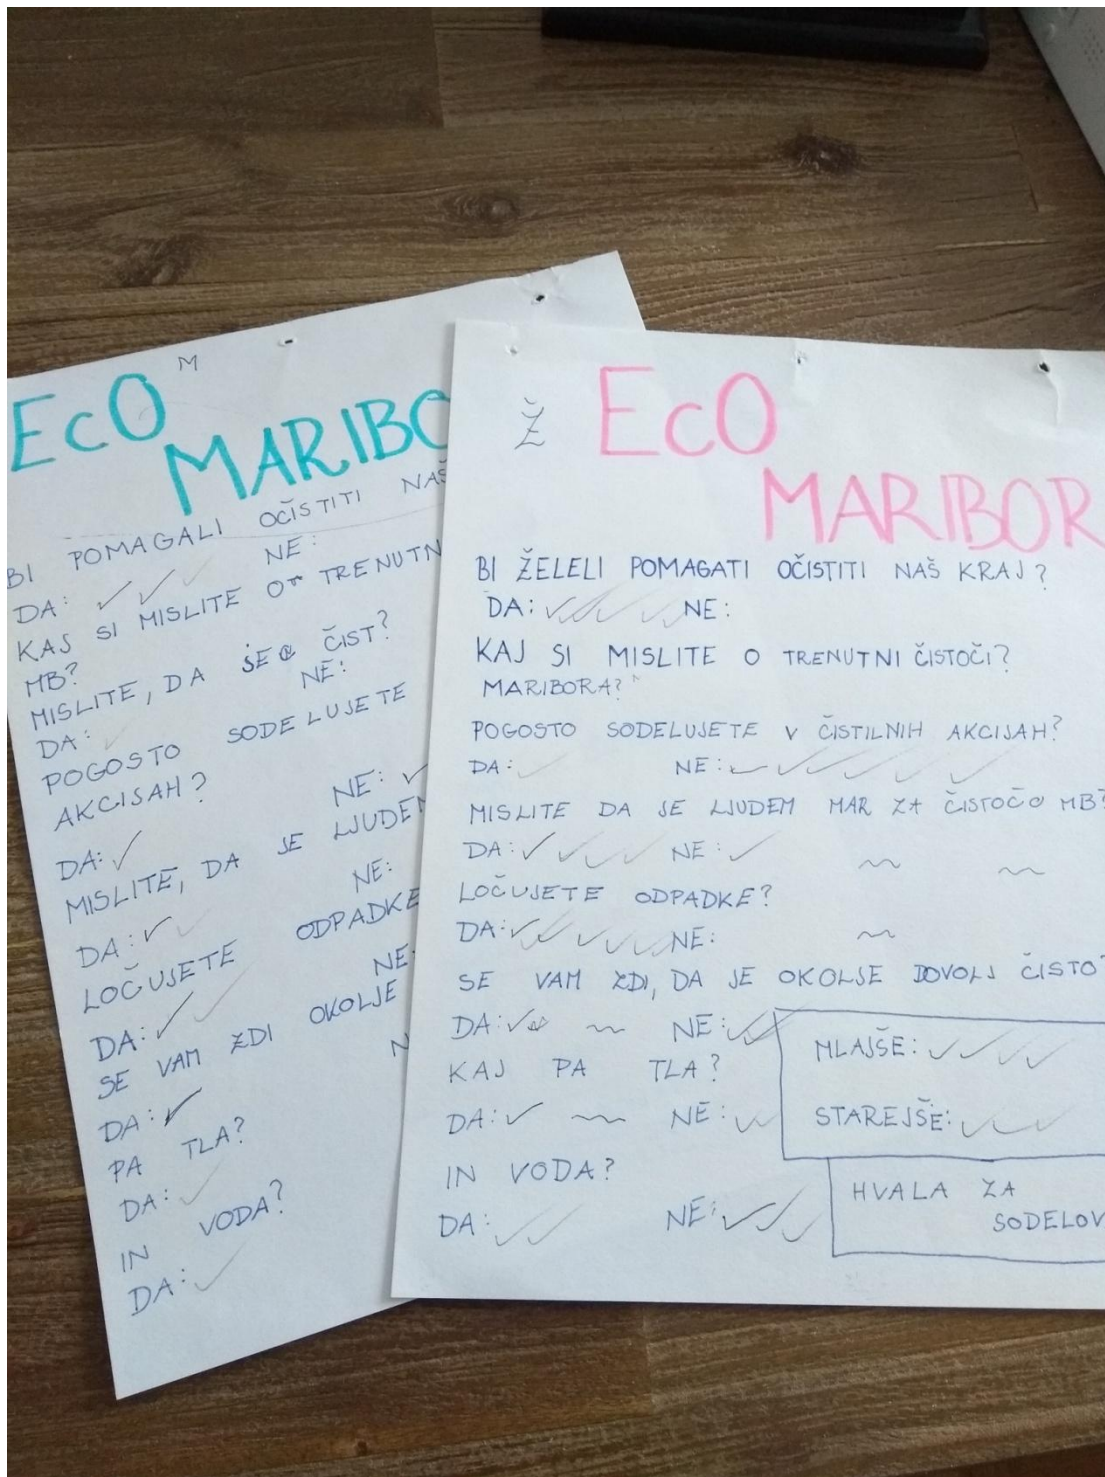 M
ECO
MARIBO
BI POMAGALI OČISTITI NAŠ
DA: NE:
KAJ SI MISLITE O TRENUTN
MB?
MISLITE, DA JE ČIST?
DA: NE:
POGOSTO SODELUJETE
AKCIJAH?
DA: NE:
MISLITE, DA JE LJUDEM
DA: NE:
LOČUJETE ODPADKE
DA: NE:
SE VAM ZDI OKOLJE
DA: N
PA TLA?
DA:
IN VODA?
DA:
Ž
ECO
MARIBOR
BI ŽELELI POMAGATI OČISTITI NAŠ KRAJ?
DA: NE:
KAJ SI MISLITE O TRENUTNI ČISTOČI?
MARIBORA?
POGOSTO SODELUJETE V ČISTILNIH AKCIJAH?
DA: NE:
MISLITE DA JE LJUDEM MAR ZA ČISTOČO MB?
DA: NE:
LOČUJETE ODPADKE?
DA: NE:
SE VAM ZDI, DA JE OKOLJE DOVOLJ ČISTO?
DA: NE:
KAJ PA TLA?
DA: NE:
IN VODA?
DA: NE:
MLAJŠE:
STAREJŠE:
HVALA ZA
SODELOV